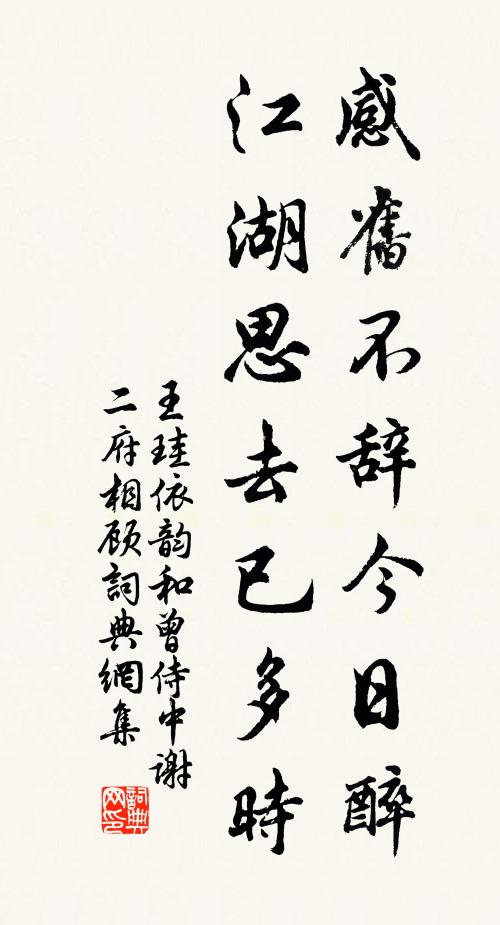 感舊不辞今日醉
江湖思去已多時
王珪依韵和曾侍中谢
二府相顾詞典網集
詞典
网印